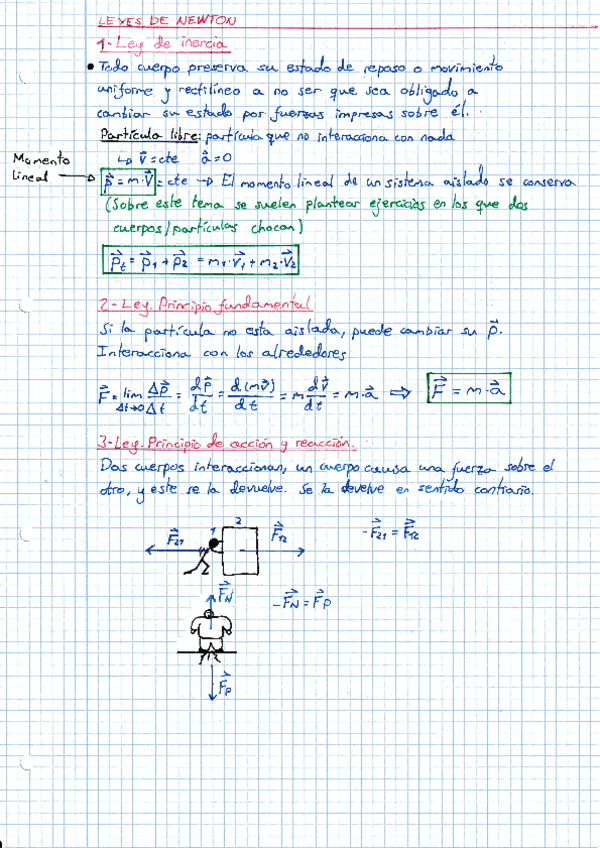 LEYES DE NEWTON
1-Ley de inercia
• Todo cuerpo preserva su estado de reposo o movimiento
uniforme y rectilíneo a no ser que sea obligado a
cambiar su estado por fuerzas impresas sobre él.
Partícula libre: partícula que no interacciona con nada
↳ v⃗ = cte a⃗ = 0
Momento
lineal →
p⃗ = m·v⃗ = cte → El momento lineal de un sistema aislado se conserva
(Sobre este tema se suelen plantear ejercicios en los que dos
cuerpos/partículas chocan)
p⃗t = p⃗1 + p⃗2 = m1·v⃗1 + m2·v⃗2
2-Ley. Principio fundamental
Si la partícula no esta aislada, puede cambiar su p⃗.
Interacciona con los alrededores
F⃗ = lim Δt→0 Δp⃗/Δt = dp⃗/dt = d(mv⃗)/dt = m dv⃗/dt = m·a⃗ ⇒ F⃗ = m·a⃗
3-Ley. Principio de acción y reacción.
Dos cuerpos interaccionan, un cuerpo causa una fuerza sobre el
otro, y este se la devuelve. Se la develve en sentido contrario.
F⃗21 1 2 F⃗12 -F⃗21 = F⃗12
F⃗N -F⃗N = F⃗P
F⃗P